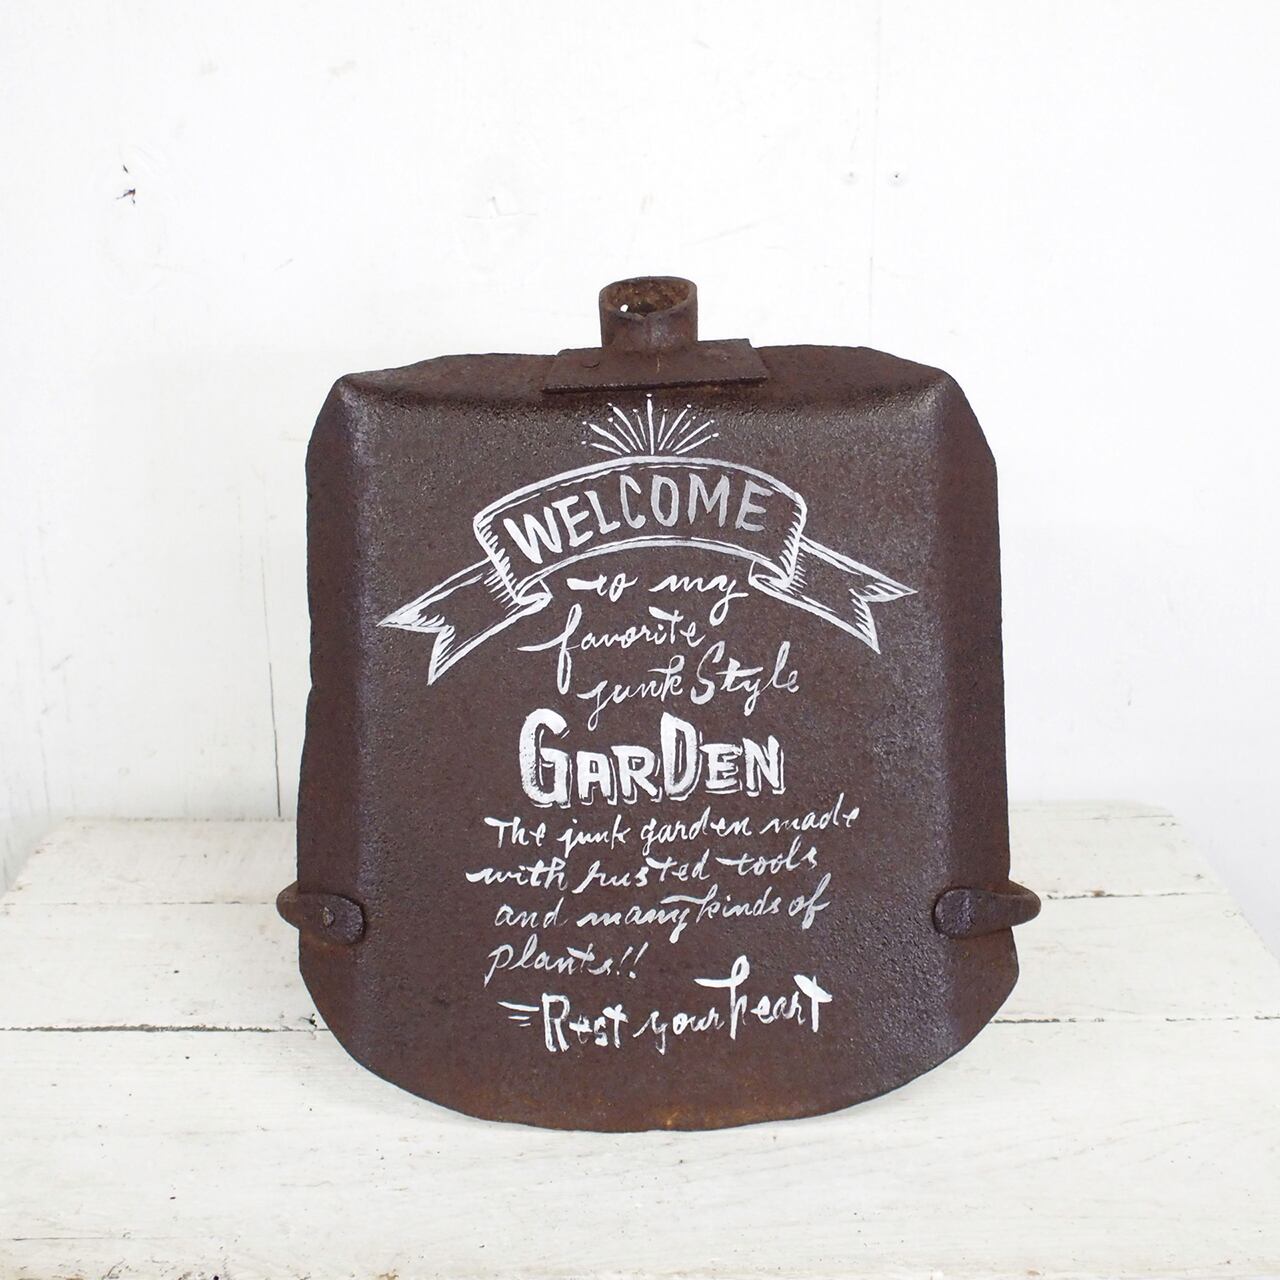 WELCOME
to my
favorite
junk Style
GARDEN
The junk garden made
with rusted tools
and many kinds of
plants!!
Rest your heart